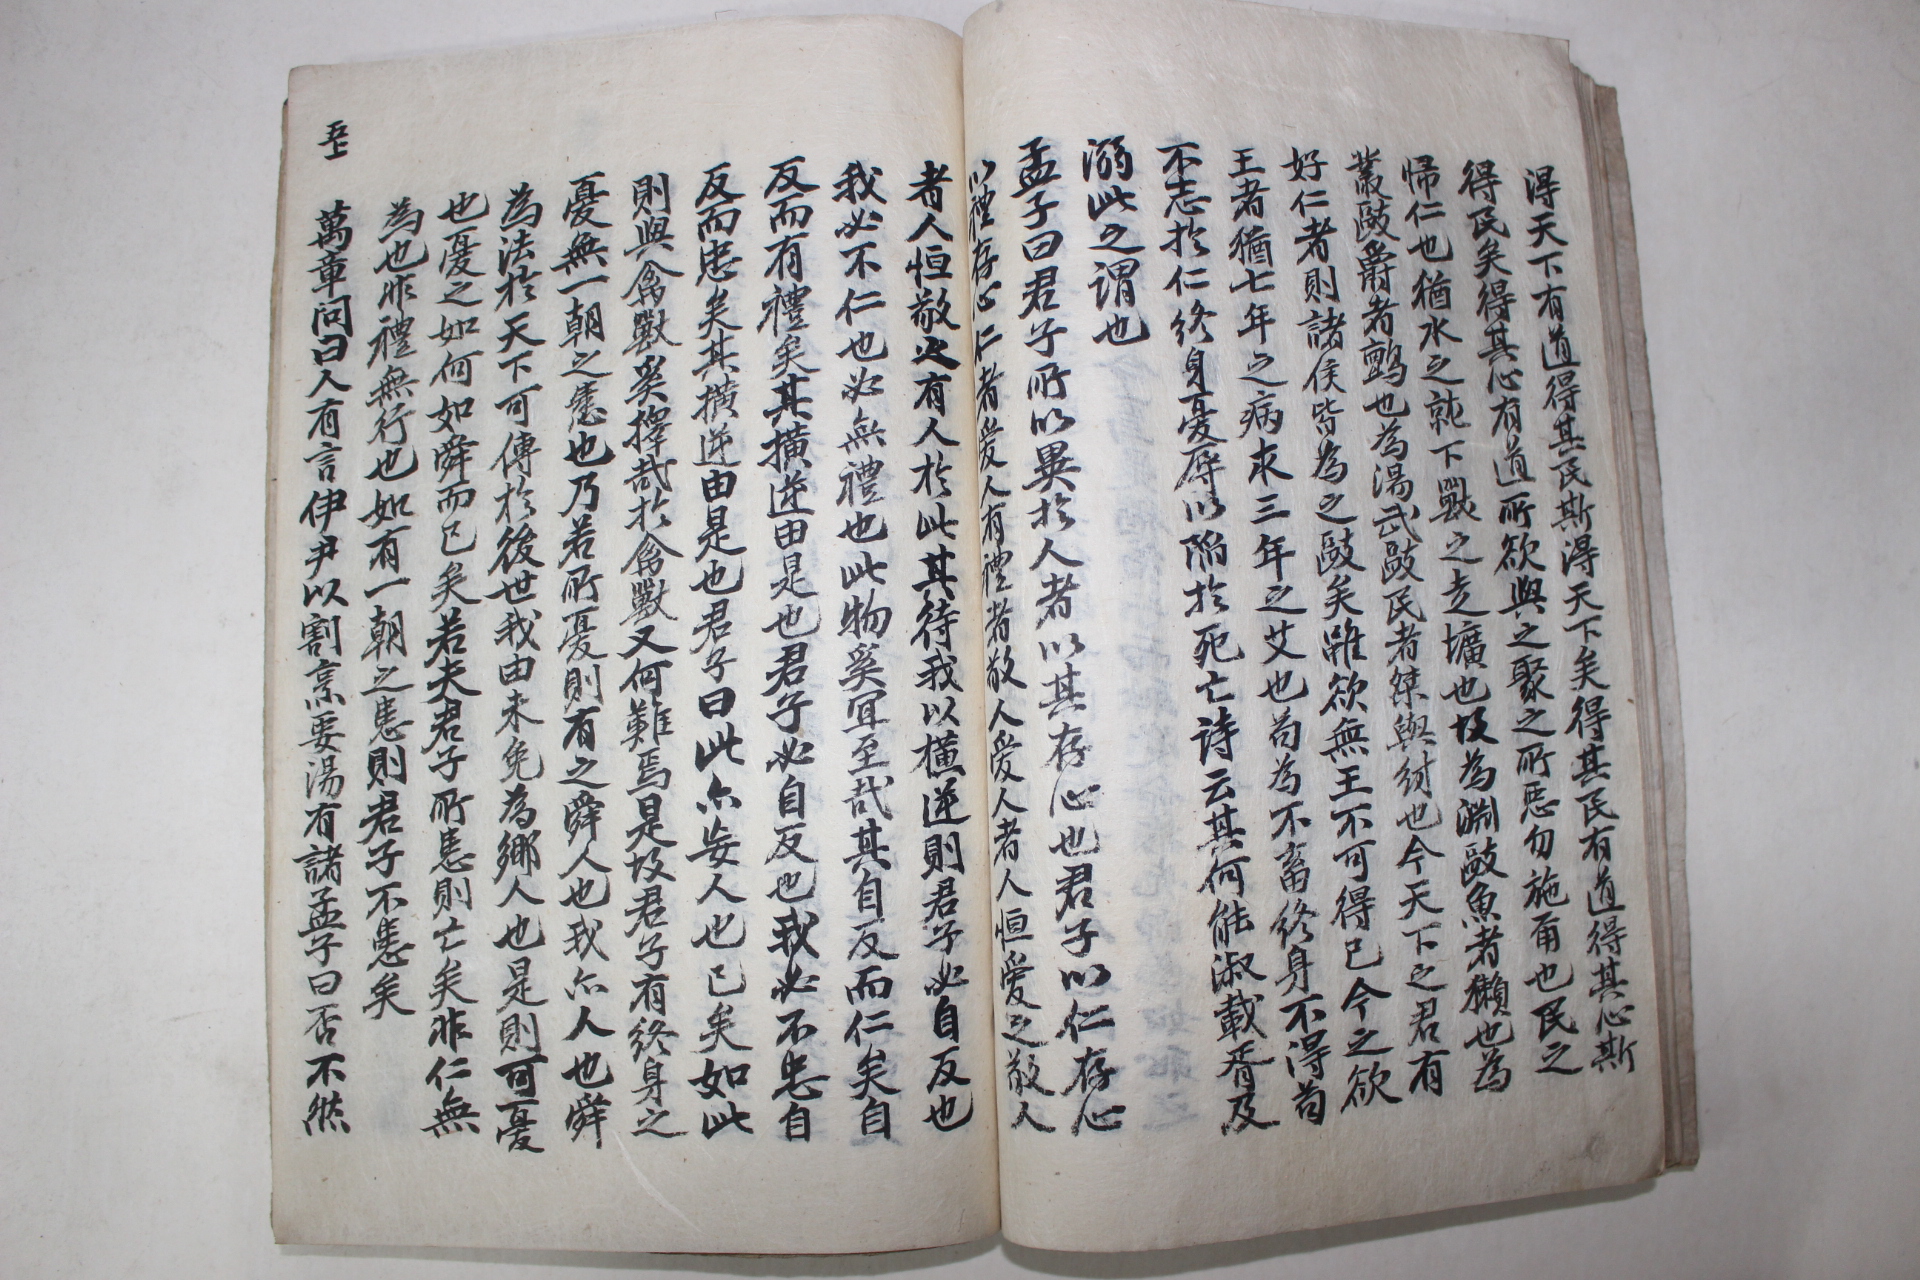 得天下有道得其民斯得天下矣得其民有道得其心斯
得民矣得其心有道所欲與之聚之所惡勿施甭也民之
帰仁也猶水之就下獸之走壙也故為淵敺魚者獺也為
叢敺爵者鸇也為湯武敺民者桀與紂也今天下之君有
好仁者則諸侯皆為之敺矣雖欲無王不可得已今之欲
王者猶七年之病求三年之艾也苟為不畜終身不得苟
不志於仁終身憂辱以陷於死亡詩云其何能淑載胥及
溺此之謂也
孟子曰君子所以異於人者以其存心也君子以仁存心
以禮存心仁者愛人有禮者敬人愛人者人恒愛之敬人
者人恒敬之有人於此其待我以橫逆則君子必自反也
我必不仁也必無禮也此物奚宜至哉其自反而仁矣自
反而有禮矣其橫逆由是也君子必自反也我必不忠自
反而忠矣其橫逆由是也君子曰此亦妄人也已矣如此
則與禽獸奚擇哉於禽獸又何難焉是故君子有終身之
憂無一朝之患也乃若所憂則有之舜人也我亦人也舜
為法於天下可傳於後世我由未免為鄉人也是則可憂
也憂之如何如舜而已矣若夫君子所患則亡矣非仁無
為也非禮無行也如有一朝之患則君子不患矣
萬章問曰人有言伊尹以割烹要湯有諸孟子曰否不然